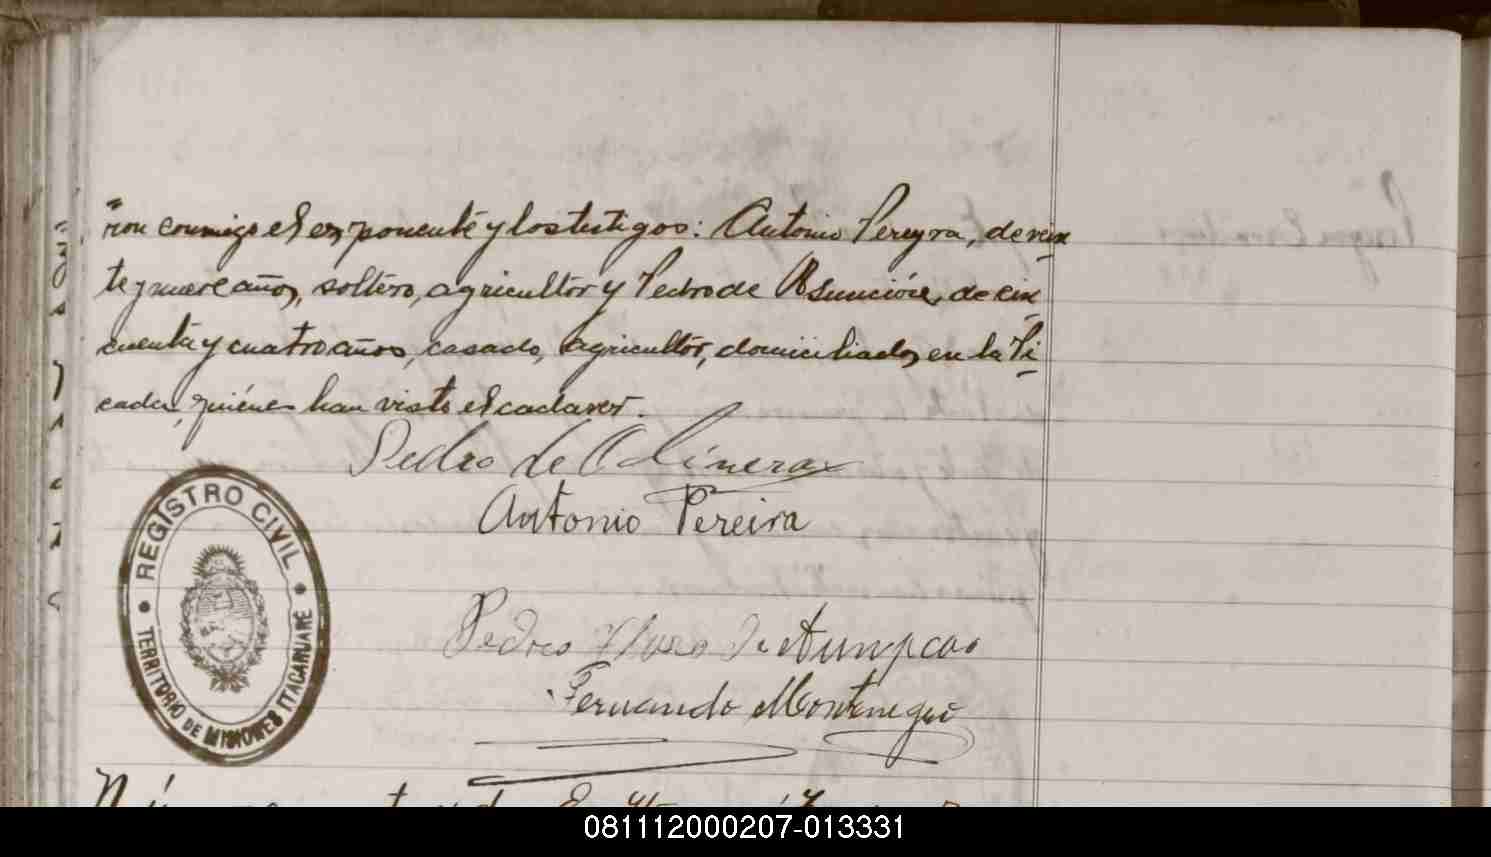 ron conmigo el exponente y los testigos: Antonio Pereyra, de vein
te y nueve años, soltero, agricultor y Pedro de Asunción, de cin
cuenta y cuatro años, casado, agricultor, domiciliados en la Pi
cada, quiénes han visto el cadaver.
Pedro de Oliveira
Antonio Pereira
Pedro de
Fernando Montenegro
REGISTRO CIVIL
TERRITORIO DE MISIONES ITACARUARÉ
Número
081112000207-013331